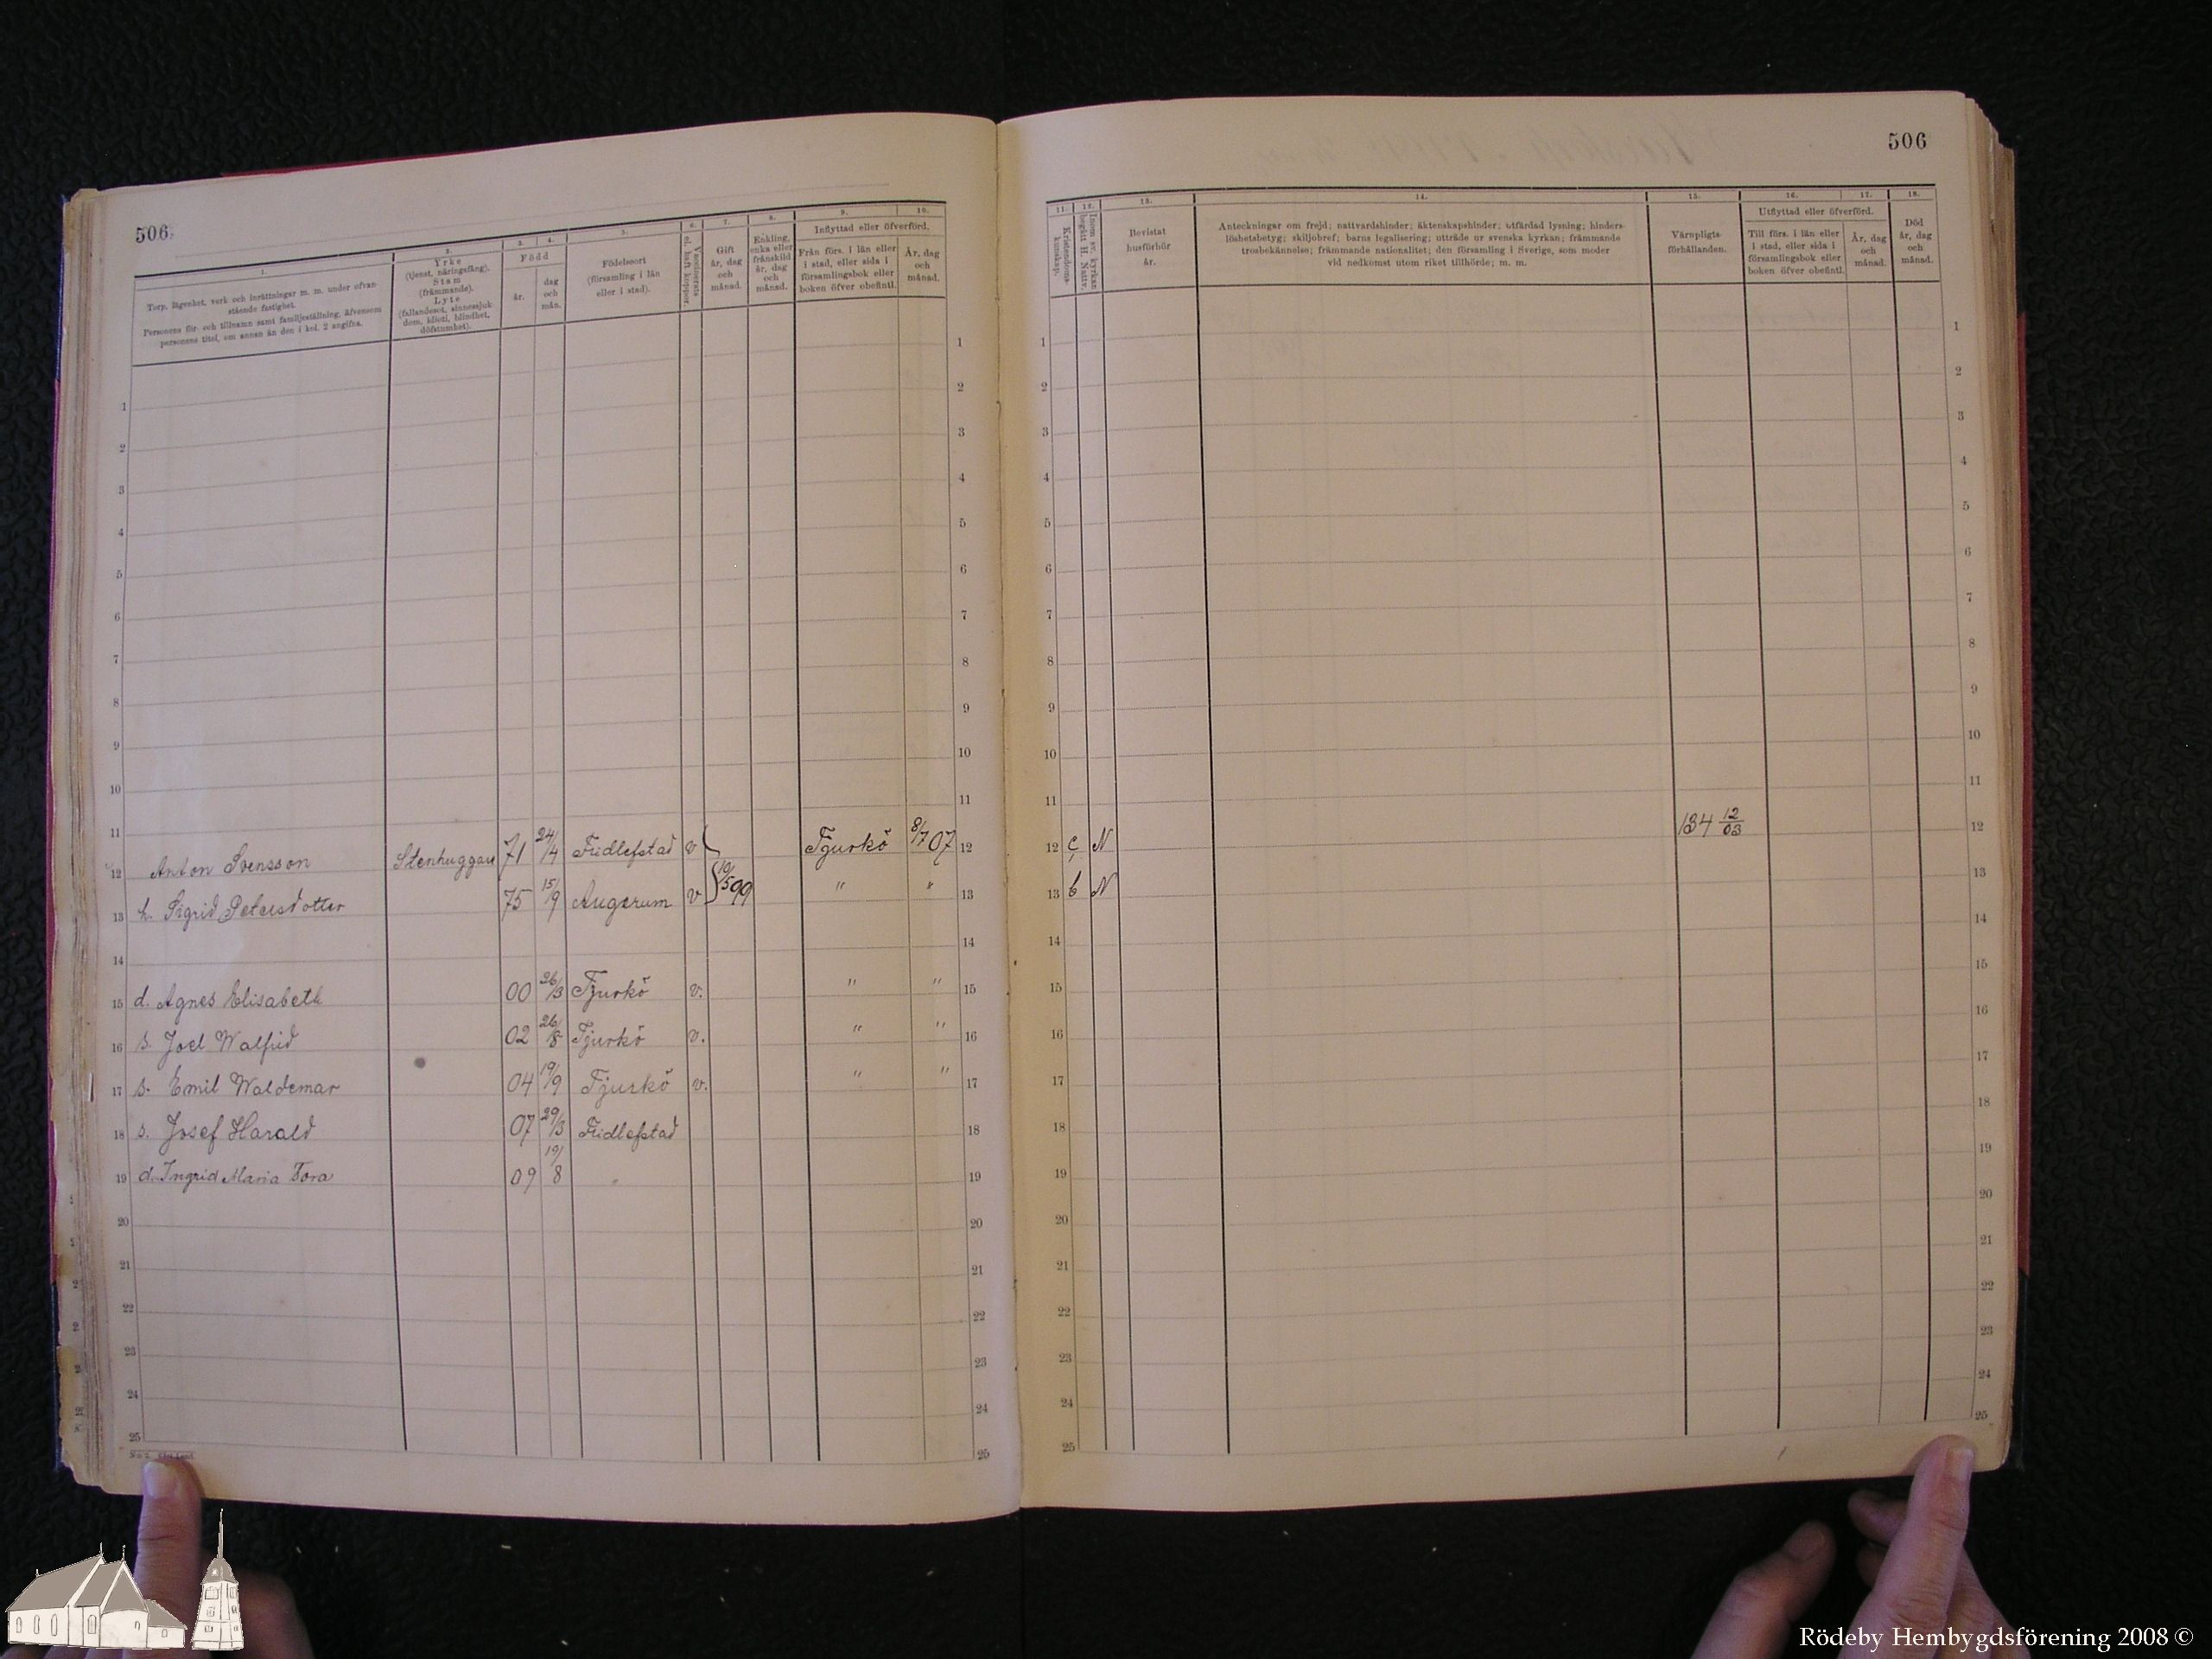 506.
1.
Torp, lägenhet, verk och inrättningar m. m. under ofvan-
stående fastighet.
Personens för- och tillnamn samt familjeställning, äfvensom
personens titel, om annan än den i kol. 2 angifna.
2.
Yrke
(tjenst, näringsfång).
Stam
(främmande).
Lyte
(fallandesot, sinnessjuk-
dom, idioti, blindhet,
döfstumhet).
3. 4.
Född
år.
dag
och
mån.
5.
Födelseort
(församling i län
eller i stad).
6.
Vaccinerats
el. haft koppor.
7.
Gift
år, dag
och
månad.
8.
Enkling,
enka eller
frånskild
år, dag
och
månad.
9. 10.
Inflyttad eller öfverförd.
Från förs. i län eller
i stad, eller sida i
församlingsbok eller
boken öfver obefintl.
År, dag
och
månad.
1 1
2 2
3 3
4 4
5 5
6 6
7 7
8 8
9 9
10 10
11 11
12 Anton Svensson Stenhuggare 71 24/4 Fridlefstad v Tjurkö 8/7 07 12
13 h. Sigrid Petersdotter 75 15/9 Augerum v 19/5 99 " " 13
14 14
15 d. Agnes Elisabeth 00 26/3 Tjurkö v. " " 15
16 s. Joel Walfrid 02 26/8 Tjurkö v. " " 16
17 s. Emil Waldemar 04 19/9 Tjurkö v. " " 17
18 s. Josef Harald 07 29/3 Fridlefstad 18
19 d. Ingrid Maria Tora 09 19/8 " 19
20 20
21 21
22 22
23 23
24 24
25 25
506
11.
Kristendoms-
kunskap.
12.
Inom sv. kyrkan
begått H. Nattv.
13.
Bevistat
husförhör
år.
14.
Anteckningar om frejd; nattvardshinder; äktenskapshinder; utfärdad lysning; hinders-
löshetsbetyg; skiljobref; barns legalisering; utträde ur svenska kyrkan; främmande
trosbekännelse; främmande nationalitet; den församling i Sverige, som moder
vid nedkomst utom riket tillhörde; m. m.
15.
Värnpligts-
förhållanden.
16. 17.
Utflyttad eller öfverförd.
Till förs. i län eller
i stad, eller sida i
församlingsbok eller
boken öfver obefintl.
År, dag
och
månad.
18.
Död
år, dag
och
månad.
1 1
2 2
3 3
4 4
5 5
6 6
7 7
8 8
9 9
10 10
11 11
12 c N 134 12/03 12
13 b N 13
14 14
15 15
16 16
17 17
18 18
19 19
20 20
21 21
22 22
23 23
24 24
25 25
Rödeby Hembygdsförening 2008 ©